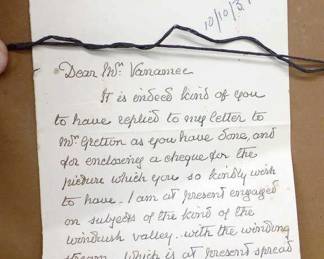 10/10/31
Dear Mrs Vanamee
It is indeed kind of you
to have replied to my letter to
Mrs Gretton as you have done, and
for enclosing a cheque for the
picture which you so kindly wish
to have. I am at present engaged
on subjects of the kind of the
windrush valley.. with the winding
stream, which is at present spread